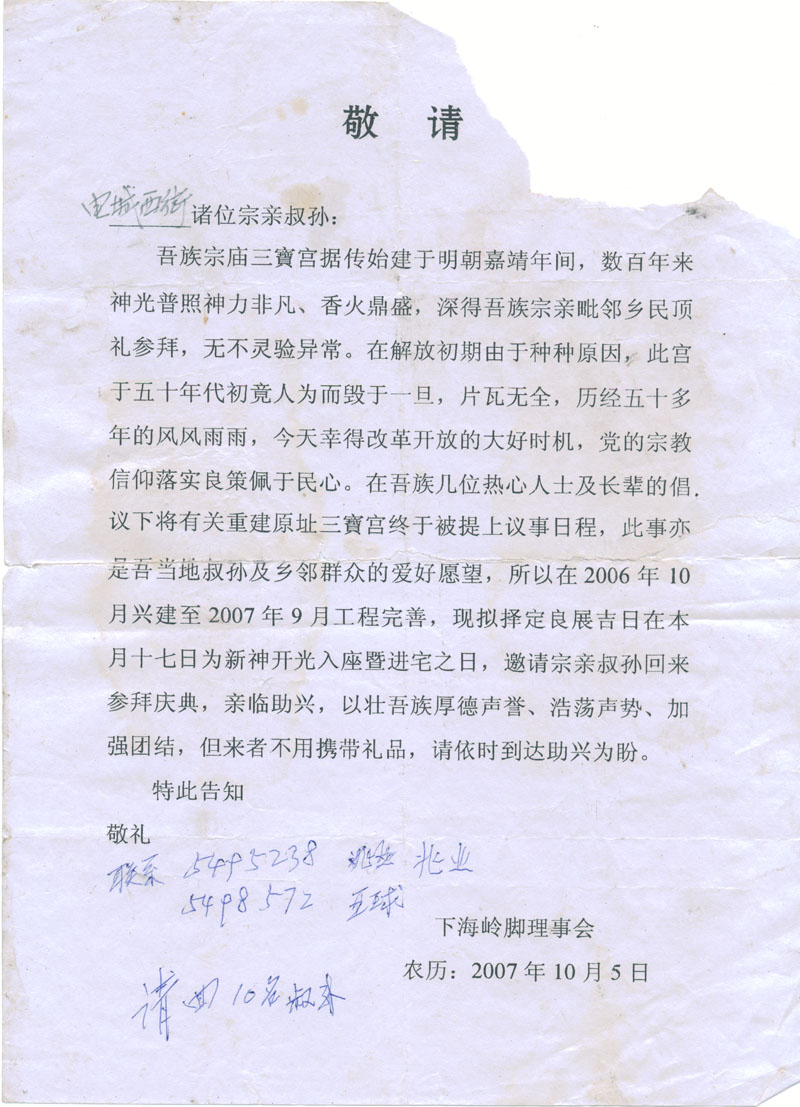 敬 请
电城西街诸位宗亲叔孙：
吾族宗庙三寶宫据传始建于明朝嘉靖年间，数百年来
神光普照神力非凡、香火鼎盛，深得吾族宗亲毗邻乡民顶
礼参拜，无不灵验异常。在解放初期由于种种原因，此宫
于五十年代初竟人为而毁于一旦，片瓦无全，历经五十多
年的风风雨雨，今天幸得改革开放的大好时机，党的宗教
信仰落实良策佩于民心。在吾族几位热心人士及长辈的倡
议下将有关重建原址三寶宫终于被提上议事日程，此事亦
是吾当地叔孙及乡邻群众的爱好愿望，所以在 2006 年 10
月兴建至 2007 年 9 月工程完善，现拟择定良展吉日在本
月十七日为新神开光入座暨进宅之日，邀请宗亲叔孙回来
参拜庆典，亲临助兴，以壮吾族厚德声誉、浩荡声势、加
强团结，但来者不用携带礼品，请依时到达助兴为盼。
特此告知
敬礼
联系 5495238 兆业
5498572 五球
下海岭脚理事会
农历：2007 年 10 月 5 日
请 10名叔